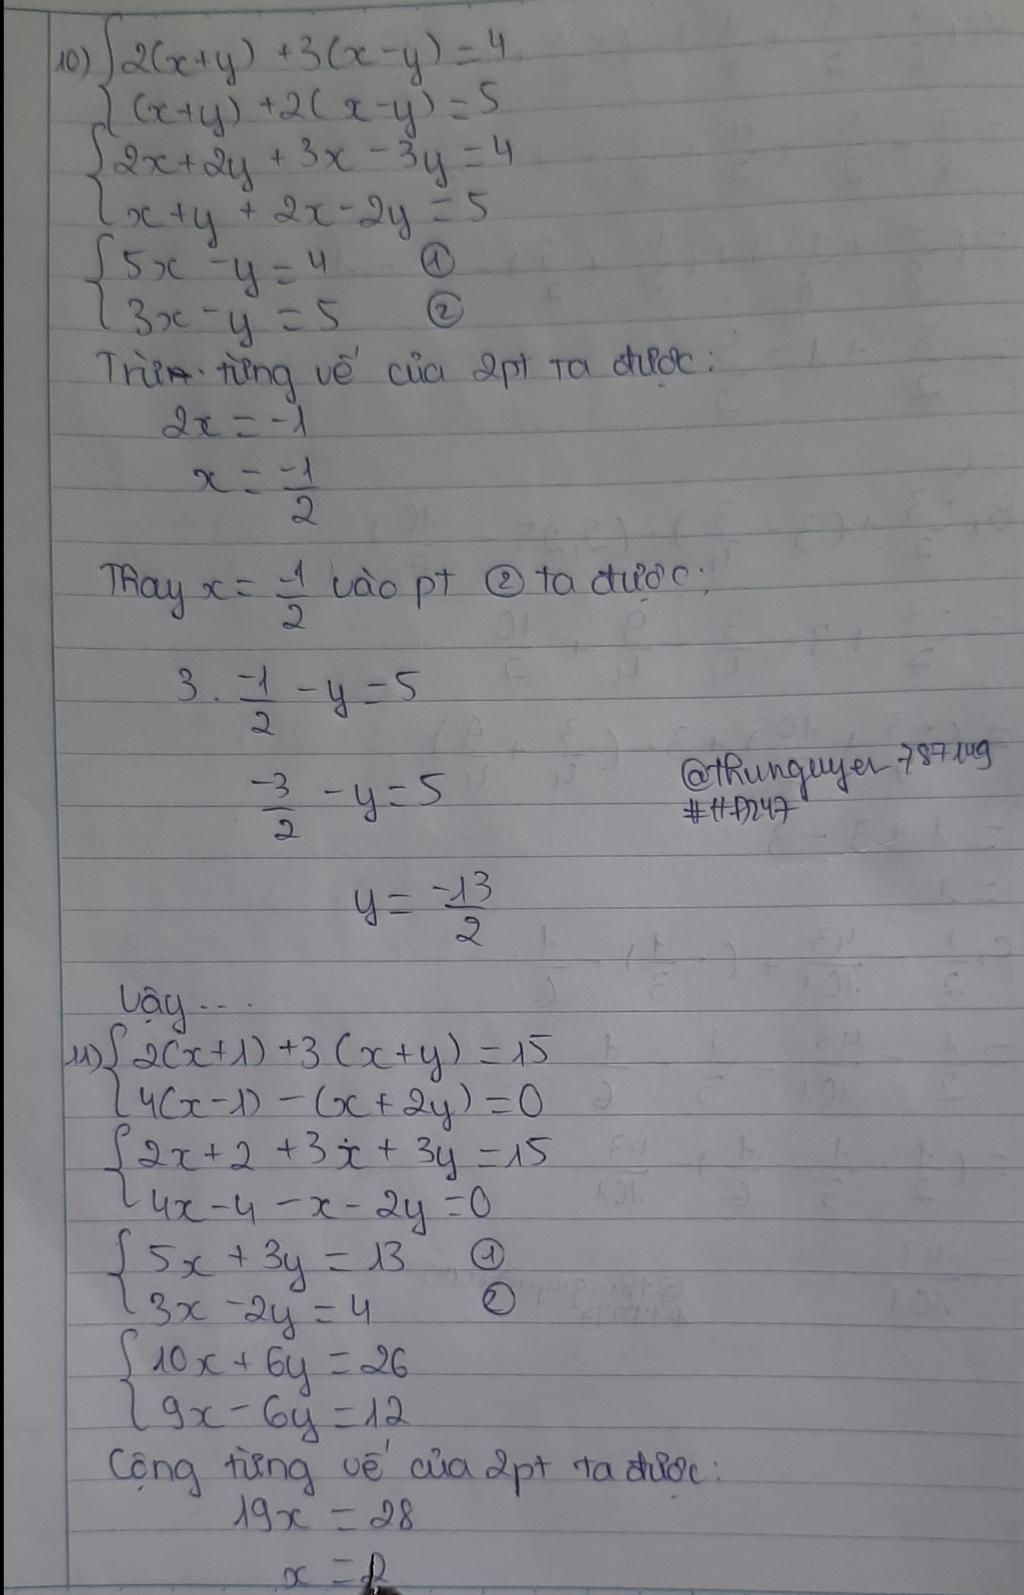 10) { 2(x+y) + 3(x-y) = 4
(x+y) + 2(x-y) = 5
{ 2x + 2y + 3x - 3y = 4
x + y + 2x - 2y = 5
{ 5x - y = 4 ①
3x - y = 5 ②
Trừ từng vế của 2pt ta được:
2x = -1
x = -1/2
Thay x = -1/2 vào pt ② ta được:
3. -1/2 - y = 5
-3/2 - y = 5
@thunguyen787149
y = -13/2
Vậy ...
11) { 2(x+1) + 3(x+y) = 15
4(x-1) - (x+2y) = 0
{ 2x + 2 + 3x + 3y = 15
4x - 4 - x - 2y = 0
{ 5x + 3y = 13 ①
3x - 2y = 4 ②
{ 10x + 6y = 26
9x - 6y = 12
Cộng từng vế của 2pt ta được:
19x = 28
x =